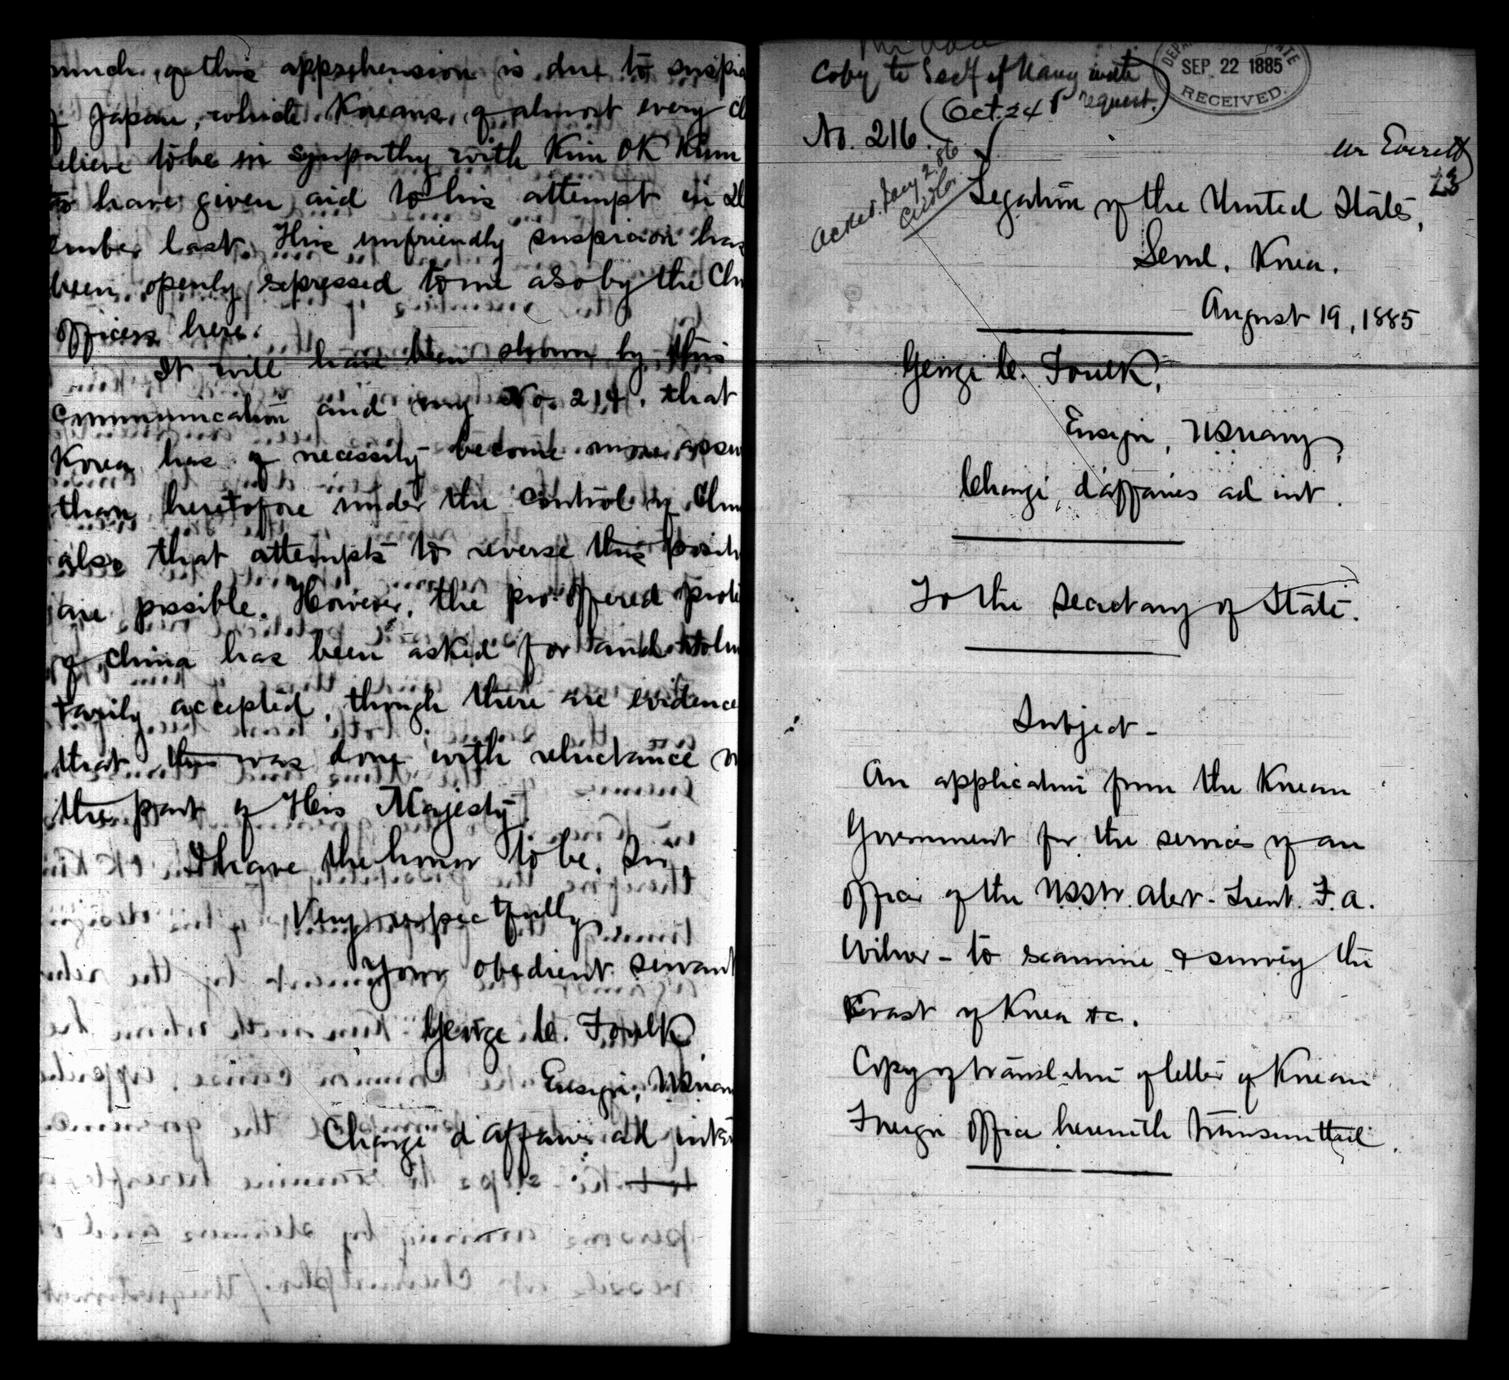 much of this apprehension is due to suspic
Japan, which Koreans, of almost every cl
elieve to be in sympathy with Kim OK Kiun
to have given aid to his attempt in De
ember last. This unfriendly suspicion has
been openly expressed to me also by the Chi
officers here.
It will have been shown by this
communication and my No. 214, that
Korea has of necessity become more assu
than heretofore under the control of Chin
also that attempts to reverse this positi
are possible. However, the proffered prote
of China has been asked for and volun
tarily accepted, though there are evidence
that this was done with reluctance on
the part of His Majesty.
I have the honor to be, Sir,
Very respectfully
Your obedient servant
George C. Foulk
Ensign, USNavy
Chargé d'affaires ad inter
Copy to Sec'y of Navy with
(Oct. 24 request.)
DEPA TATE
SEP. 22 1885
RECEIVED.
No. 216.
Mr Everett
Legation of the United States,
Seoul, Korea.
August 19, 1885
George C. Foulk,
Ensign, USNavy,
Chargé d'affaires ad int.
To the Secretary of State.
Subject -
An application from the Korean
Government for the services of an
officer of the USStr. Alert - Lieut. F. A.
Wilner - to examine & survey the
Coast of Korea &c.
Copy of translation of letter of Korean
Foreign Office herewith transmitted.